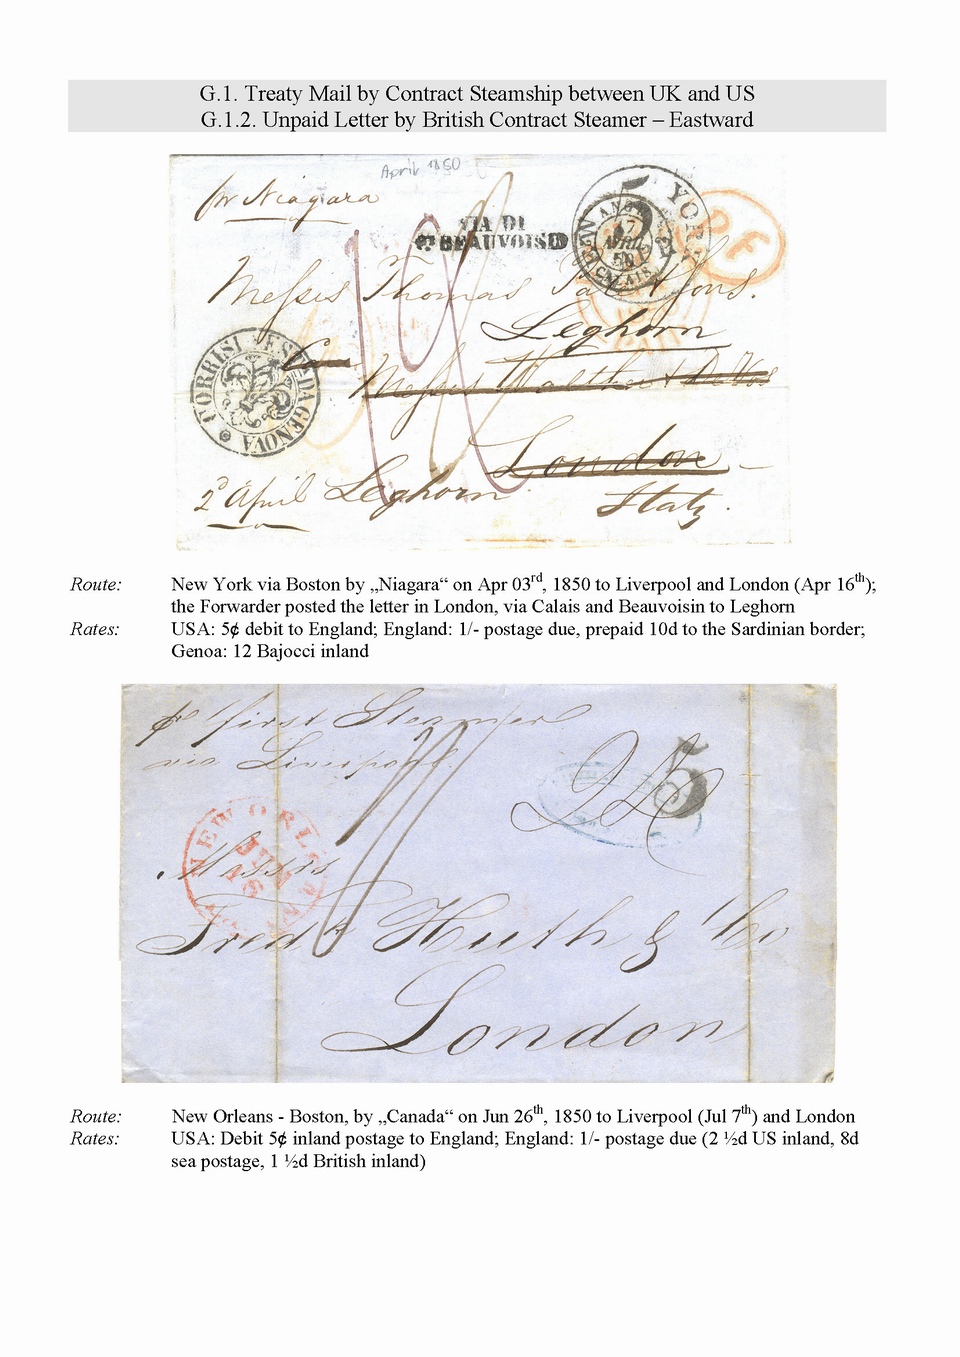 G.1. Treaty Mail by Contract Steamship between UK and US
G.1.2. Unpaid Letter by British Contract Steamer – Eastward
April 1850
pr Niagara
VIA DI
PT BEAUVOISIN
NEW YORK
5
ANGL.
17
AVRIL
50
CALAIS
P.F.
Messrs Thomas Pate & Sons.
Leghorn
Care
Messrs
London
Italy.
TORRISI ESP. DA GENOVA
2d April Leghorn
Route: New York via Boston by „Niagara“ on Apr 03rd, 1850 to Liverpool and London (Apr 16th);
the Forwarder posted the letter in London, via Calais and Beauvoisin to Leghorn
Rates: USA: 5¢ debit to England; England: 1/- postage due, prepaid 10d to the Sardinian border;
Genoa: 12 Bajocci inland
pr first Steamer
via Liverpool
5
NEW ORLEANS
JUN
16
Messrs
Fredk Huth & Co
London
Route: New Orleans - Boston, by „Canada“ on Jun 26th, 1850 to Liverpool (Jul 7th) and London
Rates: USA: Debit 5¢ inland postage to England; England: 1/- postage due (2 ½d US inland, 8d
sea postage, 1 ½d British inland)